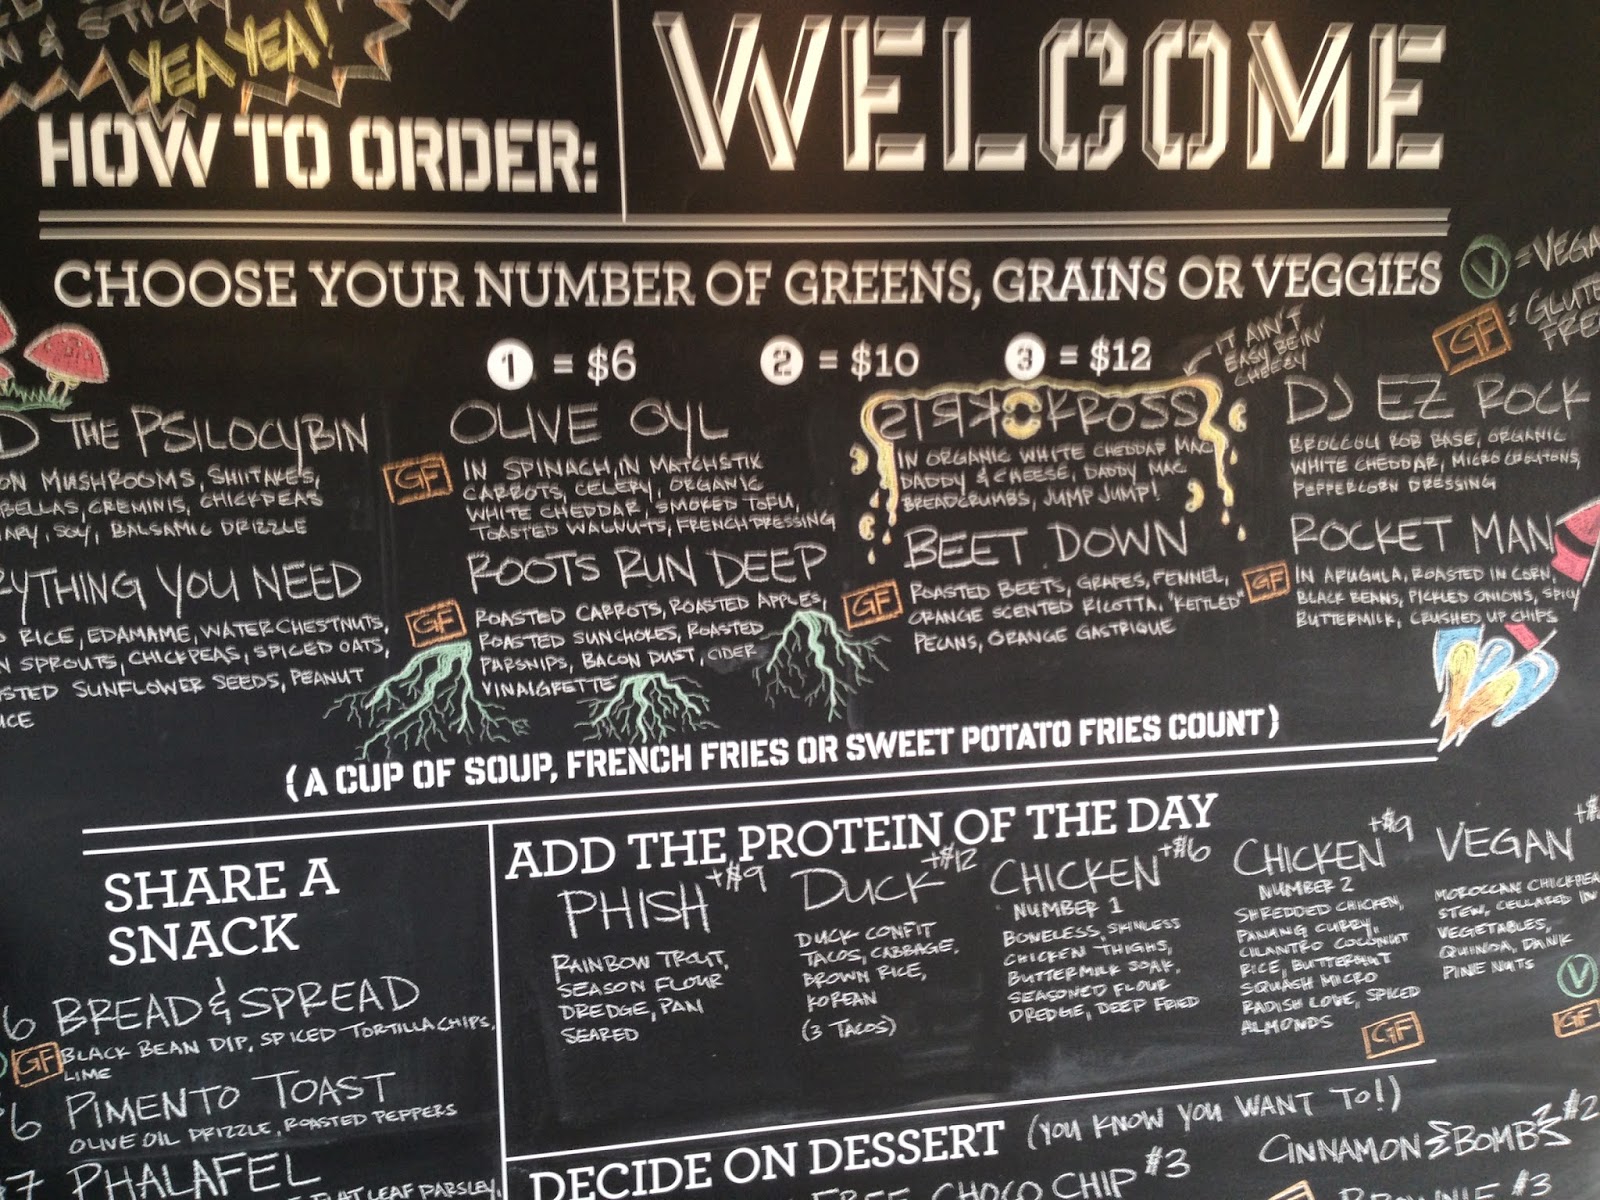 & STICKY
YEA YEA!
HOW TO ORDER:
WELCOME
CHOOSE YOUR NUMBER OF GREENS, GRAINS OR VEGGIES
V = VEGA
GF = GLUTE
FREE
1 = $6
2 = $10
3 = $12
IT AIN'T
EASY BEIN'
CHEEZY
THE PSILOCYBIN
MUSHROOMS, SHIITAKES,
BELLAS, CREMINIS, CHICKPEAS
ARY, SOY, BALSAMIC DRIZZLE
OLIVE OYL
GF
IN SPINACH, IN MATCHSTIK
CARROTS, CELERY, ORGANIC
WHITE CHEDDAR, SMOKED TOFU,
TOASTED WALNUTS, FRENCH DRESSING
KRISS KROSS
IN ORGANIC WHITE CHEDDAR MAC
DADDY & CHEESE, DADDY MAC
BREADCRUMBS, JUMP JUMP!
DJ EZ ROCK
BROCCOLI ROB BASE, ORGANIC
WHITE CHEDDAR, MICRO CROUTONS,
PEPPERCORN DRESSING
RYTHING YOU NEED
RICE, EDAMAME, WATER CHESTNUTS,
N SPROUTS, CHICKPEAS, SPICED OATS,
STED SUNFLOWER SEEDS, PEANUT
UCE
ROOTS RUN DEEP
GF
ROASTED CARROTS, ROASTED APPLES,
ROASTED SUNCHOKES, ROASTED
PARSNIPS, BACON DUST, CIDER
VINAIGRETTE
BEET DOWN
GF
ROASTED BEETS, GRAPES, FENNEL,
ORANGE SCENTED RICOTTA, "KETTLED"
PECANS, ORANGE GASTRIQUE
ROCKET MAN
GF
IN ARUGULA, ROASTED IN CORN,
BLACK BEANS, PICKLED ONIONS, SPICY
BUTTERMILK, CRUSHED UP CHIPS
(A CUP OF SOUP, FRENCH FRIES OR SWEET POTATO FRIES COUNT)
SHARE A
SNACK
6 BREAD & SPREAD
GF BLACK BEAN DIP, SPICED TORTILLA CHIPS,
LIME
6 PIMENTO TOAST
OLIVE OIL DRIZZLE, ROASTED PEPPERS
7 PHALAFEL
FLAT LEAF PARSLEY,
ADD THE PROTEIN OF THE DAY
PHISH +$9
RAINBOW TROUT,
SEASON FLOUR
DREDGE, PAN
SEARED
DUCK +$12
DUCK CONFIT
TACOS, CABBAGE,
BROWN RICE,
KOREAN
(3 TACOS)
CHICKEN +$6
NUMBER 1
BONELESS, SKINLESS
CHICKEN THIGHS,
BUTTERMILK SOAK,
SEASONED FLOUR
DREDGE, DEEP FRIED
CHICKEN +$9
NUMBER 2
SHREDDED CHICKEN,
PANANG CURRY,
CILANTRO COCONUT
RICE, BUTTERNUT
SQUASH MICRO
RADISH LOVE, SPICED
ALMONDS
GF
VEGAN +$
MOROCCAN CHICKPEA
STEW, CELLARED IN
VEGETABLES,
QUINOA, DANK
PINE NUTS
V
GF
DECIDE ON DESSERT (YOU KNOW YOU WANT TO!)
FREE CHOCO CHIP $3
CINNAMON BOMBS $2
BROWNIE $3